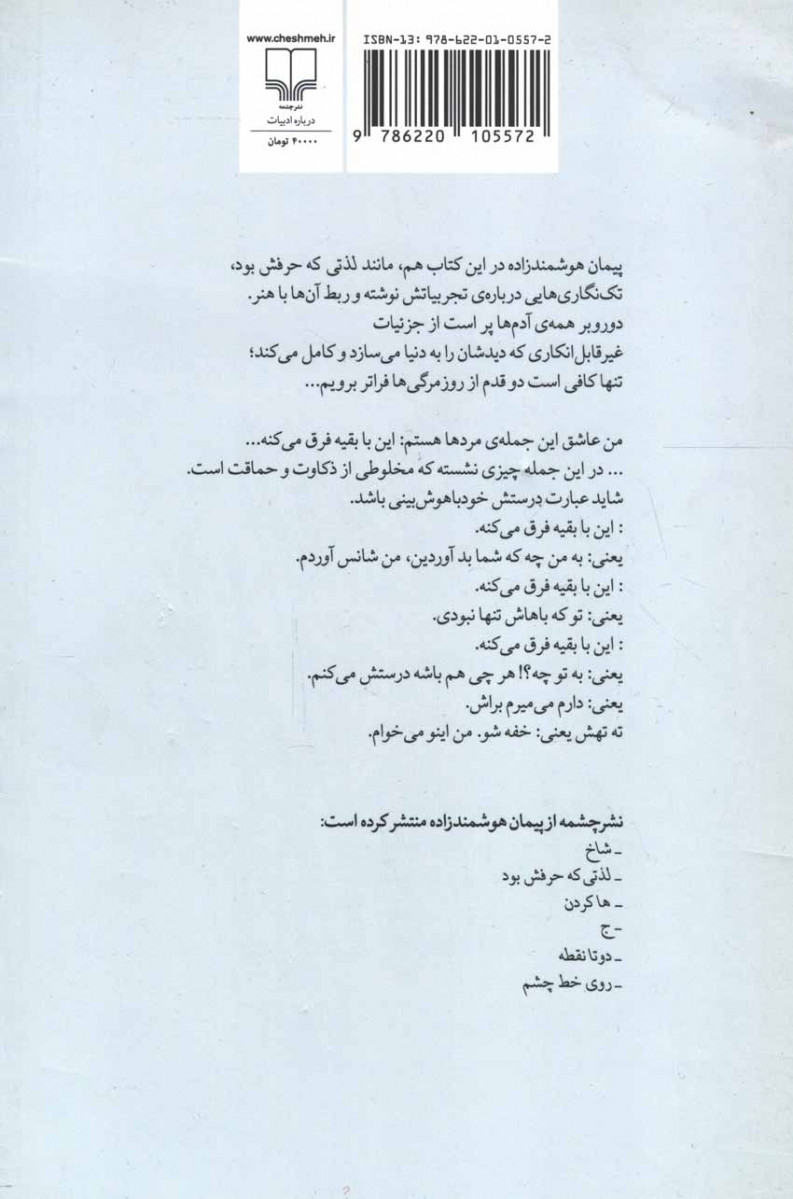 www.cheshmeh.ir
نشرچشمه
درباره ادبیات
۴۰۰۰۰ تومان
ISBN-13: 978-622-01-0557-2
9 786220 105572
پیمان هوشمندزاده در این کتاب هم، مانند لذتی که حرفش بود،
تک‌نگاری‌هایی درباره‌ی تجربیاتش نوشته و ربط آن‌ها با هنر.
دوروبر همه‌ی آدم‌ها پر است از جزئیات
غیرقابل‌انکاری که دیدشان را به دنیا می‌سازد و کامل می‌کند؛
تنها کافی است دو قدم از روزمرگی‌ها فراتر برویم...
من عاشق این جمله‌ی مردها هستم: این با بقیه فرق می‌کنه...
... در این جمله چیزی نشسته که مخلوطی از ذکاوت و حماقت است.
شاید عبارت درستش خودباهوش‌بینی باشد.
: این با بقیه فرق می‌کنه.
یعنی: به من چه که شما بد آوردین، من شانس آوردم.
: این با بقیه فرق می‌کنه.
یعنی: تو که باهاش تنها نبودی.
: این با بقیه فرق می‌کنه.
یعنی: به تو چه؟! هر چی هم باشه درستش می‌کنم.
یعنی: دارم می‌میرم براش.
ته تهش یعنی: خفه شو. من اینو می‌خوام.
نشرچشمه از پیمان هوشمندزاده منتشر کرده است:
ـ شاخ
ـ لذتی که حرفش بود
ـ ها کردن
ـ ج
ـ دوتا نقطه
ـ روی خط چشم